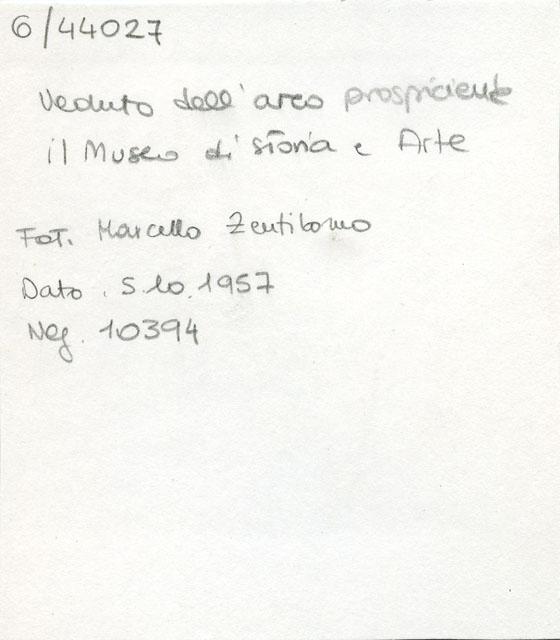 6/44027
Veduta dell'area prospiciente
il Museo di Storia e Arte
Fot. Marcello Zentilomo
Data . 5.10.1957
Neg. 10394